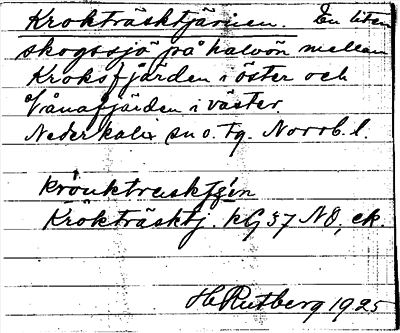 Krokträsktjärnen. En liten
skogssjö på halvön mellan
Kroksfjärden i öster och
Vånafjärden i väster.
Nederkalix sn o. tg. Norrb. l.
Krokträsktj. kG 37 NO, ek.
H Rutberg 1925